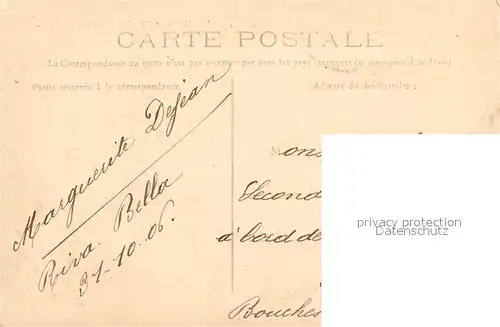 CARTE POSTALE
La Correspondance au recto n'est pas acceptée par tous les pays étrangers (se renseigner à la Poste)
Partie réservée à la correspondance
Adresse du destinataire :
Marguerite Dejean
Riva. Bella
31-10-06.
Mons
Second
à bord de
Bouches
privacy protection
Datenschutz